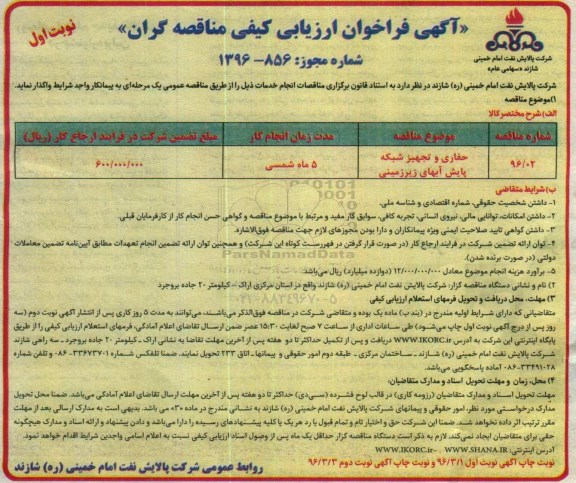 «آگهی فراخوان ارزیابی کیفی مناقصه گران»
نوبت اول
شماره مجوز: ۸۵۶- ۱۳۹۶
شرکت پالایش نفت امام خمینی
شازند «سهامی عام»
شرکت پالایش نفت امام خمینی (ره) شازند در نظر دارد به استناد قانون برگزاری مناقصات انجام خدمات ذیل را از طریق مناقصه عمومی یک مرحله‌ای به پیمانکار واجد شرایط واگذار نماید.
۱) موضوع مناقصه
الف) شرح مختصر کالا
شماره مناقصه موضوع مناقصه مدت زمان انجام کار مبلغ تضمین شرکت در فرایند ارجاع کار (ریال)
۹۶/۰۲ حفاری و تجهیز شبکه پایش آبهای زیرزمینی ۵ ماه شمسی ۶۰۰/۰۰۰/۰۰۰
ب) شرایط متقاضی
۱- داشتن شخصیت حقوقی، شماره اقتصادی و شناسه ملی.
۲- داشتن امکانات، توانایی مالی، نیروی انسانی، تجربه کافی، سوابق کار مفید و مرتبط با موضوع مناقصه و گواهی حسن انجام کار از کارفرمایان قبلی.
۳- داشتن گواهی تایید صلاحیت ایمنی ویژه پیمانکاران و دارا بودن مجوزهای لازم جهت مناقصه فوق‌الاشاره.
۴- توان ارائه تضمین شرکت در فرایند ارجاع کار (در صورت قرار گرفتن در فهرست کوتاه این شرکت) و همچنین توان ارائه تضمین انجام تعهدات مطابق آیین‌نامه تضمین معاملات
دولتی (در صورت برنده شدن).
۵- برآورد هزینه انجام موضوع معادل ۱۲/۰۰۰/۰۰۰/۰۰۰ (دوازده میلیارد) ریال می‌باشد.
۲) نام و نشانی دستگاه مناقصه گزار: شرکت پالایش نفت امام خمینی (ره) شازند واقع در استان مرکزی اراک – کیلومتر ۲۰ جاده بروجرد
۳) مهلت، محل دریافت و تحویل فرمهای استعلام ارزیابی کیفی
متقاضیانی که دارای شرایط اولیه مندرج در (بند ب) ماده یک بوده و متقاضی شرکت در مناقصه فوق‌الذکر می‌باشند، می‌توانند به مدت ۵ روز کاری پس از انتشار آگهی نوبت دوم (سه
روز پس از درج آگهی نوبت اول چاپ می‌شود) طی ساعات اداری از ساعت ۷ صبح لغایت ۱۵:۳۰ عصر ضمن ارسال تقاضای اعلام آمادگی، فرمهای استعلام ارزیابی کیفی را از طریق
پایگاه اینترنتی این شرکت به آدرس WWW.IKORC.ir دریافت و پس از تکمیل حداکثر تا دو هفته پس از آخرین مهلت تقاضا به نشانی اراک ـ کیلومتر ۲۰ جاده بروجرد ـ سه راهی شازند
شرکت پالایش نفت امام خمینی (ره) شازند ـ ساختمان مرکزی ـ طبقه دوم امور حقوقی و پیمانها ـ اتاق ۲۳۳ تحویل نمایند. ضمنا تلفکس شماره ۳۳۶۷۳۷۰۱-۰۸۶ و تلفن شماره
۳۳۴۹۱۰۲۸-۰۸۶ آماده پاسخگویی می‌باشد.
۴) محل، زمان و مهلت تحویل اسناد و مدارک متقاضیان:
مهلت تحویل اسناد و مدارک متقاضیان (رزومه کاری) در قالب لوح فشرده (سی‌دی) حداکثر تا دو هفته پس از آخرین مهلت ارسال تقاضای اعلام آمادگی می‌باشد. ضمنا محل تحویل
مدارک درخواستی مورد نظر، امور حقوقی و پیمانهای شرکت پالایش نفت امام خمینی (ره) شازند به نشانی مندرج در ماده «۳» می باشد. بدیهی است به مدارک ارسالی بعد از مهلت
مقرر ترتیب اثر داده نخواهد شد. ضمنا این شرکت حق و اختیار تام و تمام قبول یا رد هر یک یا کلیه پیشنهادهای رسیده را دارا می‌باشد و دادن پیشنهاد و ارائه اسناد و مدارک هیچگونه
حقی برای متقاضیان ایجاد نمی‌کند. لازم به ذکر است دستگاه مناقصه گزار حداقل یک ماه پس از وصول اسناد ارزیابی کیفی نسبت به اعلام اسامی واجدین شرایط اقدام خواهد نمود.
آدرس اینترنتی: WWW.IKORC.ir - WWW.SHANA.IR
نوبت چاپ آگهی نوبت اول ۹۶/۳/۱ و نوبت چاپ آگهی نوبت دوم ۹۶/۳/۳
روابط عمومی شرکت پالایش نفت امام خمینی (ره) شازند
ParsNamadData
۰۲۱-۸۸۳۴۹۶۷۰-۵